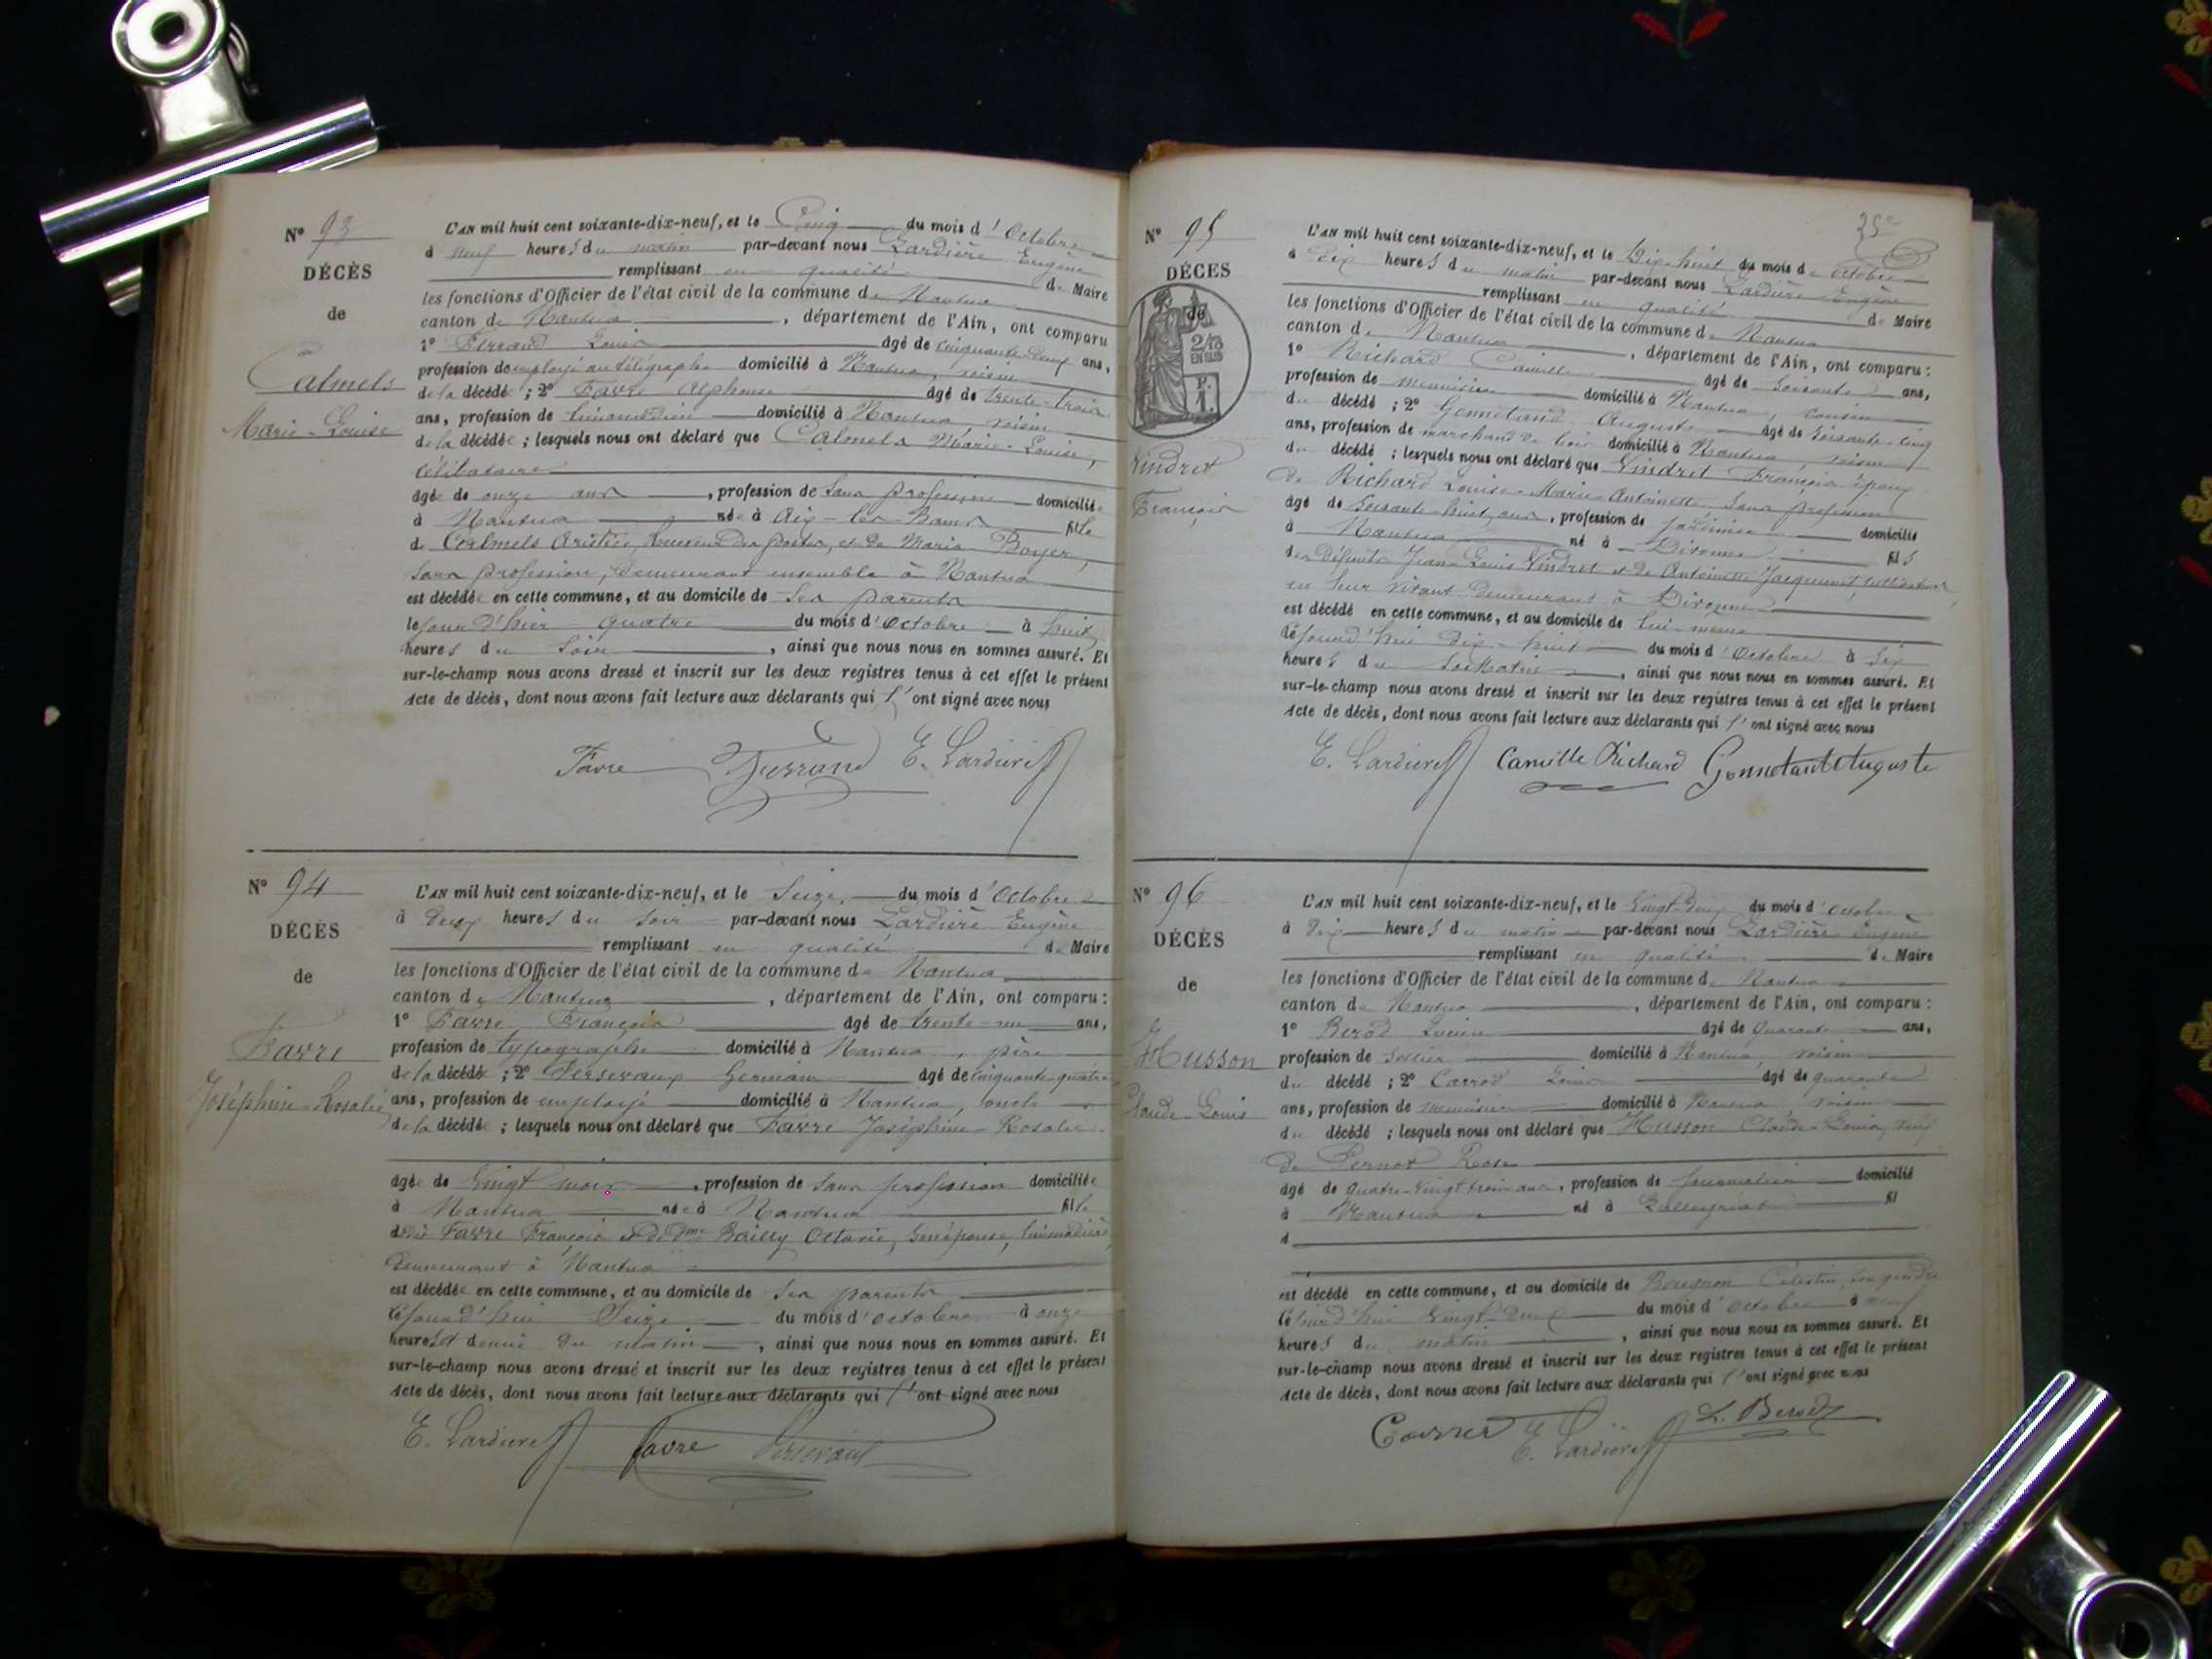 N° 93
DÉCÈS
de
Calmels
Marie-Louise
L'AN mil huit cent soixante-dix-neuf, et le Cinq du mois d'Octobre
à neuf heures du matin par-devant nous Lardière Eugène
remplissant en qualité de Maire
les fonctions d'Officier de l'état civil de la commune de Nantua
canton de Nantua, département de l'Ain, ont comparu
1° Ferrand Louis âgé de cinquante-deux ans,
profession d'employé au télégraphe domicilié à Nantua, voisin
de la décédé; 2° Favre Alphonse âgé de trente-trois
ans, profession de limonadier domicilié à Nantua, voisin
de la décédée; lesquels nous ont déclaré que Calmels Marie-Louise,
célibataire
âgée de onze ans, profession de sans profession domiciliée
à Nantua née à Aix-les-Bains fille
de Calmels Aristide, Receveur des postes, et de Maria Boyer,
sans profession, demeurant ensemble à Nantua
est décédée en cette commune, et au domicile de ses parents
le jour d'hier quatre du mois d'Octobre à huit
heures du soir, ainsi que nous nous en sommes assuré. Et
sur-le-champ nous avons dressé et inscrit sur les deux registres tenus à cet effet le présent
Acte de décès, dont nous avons fait lecture aux déclarants qui l'ont signé avec nous
Favre Ferrand E. Lardière
N° 94
DÉCÈS
de
Favre
Joséphine-Rosalie
L'AN mil huit cent soixante-dix-neuf, et le Seize du mois d'Octobre
à deux heures du soir par-devant nous Lardière Eugène
remplissant en qualité de Maire
les fonctions d'Officier de l'état civil de la commune de Nantua
canton de Nantua, département de l'Ain, ont comparu:
1° Favre François âgé de trente-un ans,
profession de typographe domicilié à Nantua, père
de la décédée; 2° Perseraux Germain âgé de cinquante-quatre
ans, profession de employé domicilié à Nantua, oncle
de la décédée; lesquels nous ont déclaré que Favre Joséphine-Rosalie
âgée de Vingt mois, profession de sans profession domiciliée
à Nantua née à Nantua fille
de Favre François et de dme Bailly Octavie, son épouse, limonadière,
demeurant à Nantua
est décédée en cette commune, et au domicile de ses parents
cejourd'hui Seize du mois d'octobre à onze
heures et demie du matin, ainsi que nous nous en sommes assuré. Et
sur-le-champ nous avons dressé et inscrit sur les deux registres tenus à cet effet le présent
Acte de décès, dont nous avons fait lecture aux déclarants qui l'ont signé avec nous
E. Lardière Favre
N° 95
DÉCES
de
Vindret
François
L'AN mil huit cent soixante-dix-neuf, et le Dix-huit du mois de octobre
à Dix heures du matin par-devant nous Lardière Eugène
remplissant en qualité de Maire
les fonctions d'Officier de l'état civil de la commune de Nantua
canton de Nantua, département de l'Ain, ont comparu:
1° Richard Camille âgé de Soixante ans,
profession de menuisier domicilié à Nantua, cousin
du décédé; 2° Gonnetand Auguste âgé de Soixante-cinq
ans, profession de marchand de bois domicilié à Nantua, voisin
du décédé; lesquels nous ont déclaré que Vindret François époux
de Richard Louise-Marie-Antoinette, sans profession
âgé de Soixante-huit ans, profession de jardinier domicilié
à Nantua né à Divonne fils
des défunts Jean-Louis Vindret et de Antoinette Jacquemet, cultivateurs
en leur vivant demeurant à Divonne
est décédé en cette commune, et au domicile de lui-même
cejourd'hui dix-huit du mois d'Octobre à six
heures du matin, ainsi que nous nous en sommes assuré. Et
sur-le-champ nous avons dressé et inscrit sur les deux registres tenus à cet effet le présent
Acte de décès, dont nous avons fait lecture aux déclarants qui l'ont signé avec nous
E. Lardière Camille Richard Gonnetand Auguste
N° 96
DÉCÈS
de
Husson
Claude-Louis
L'AN mil huit cent soixante-dix-neuf, et le Vingt-deux du mois d'octobre
à Dix heures du matin par-devant nous Lardière Eugène
remplissant en qualité de Maire
les fonctions d'Officier de l'état civil de la commune de Nantua
canton de Nantua, département de l'Ain, ont comparu:
1° Berod Lucien âgé de Quarante ans,
profession de sellier domicilié à Nantua, voisin
du décédé; 2° Carrod Louis âgé de quarante
ans, profession de menuisier domicilié à Nantua, voisin
du décédé; lesquels nous ont déclaré que Husson Claude-Louis, veuf
de Pernot Rose
âgé de Quatre-vingt trois ans, profession de journalier domicilié
à Nantua né à fil
d
est décédé en cette commune, et au domicile de Célestin, son gendre
cejourd'hui Vingt-deux du mois d'octobre à neuf
heures du matin, ainsi que nous nous en sommes assuré. Et
sur-le-champ nous avons dressé et inscrit sur les deux registres tenus à cet effet le présent
Acte de décès, dont nous avons fait lecture aux déclarants qui l'ont signé avec nous
E. Lardière L. Berod